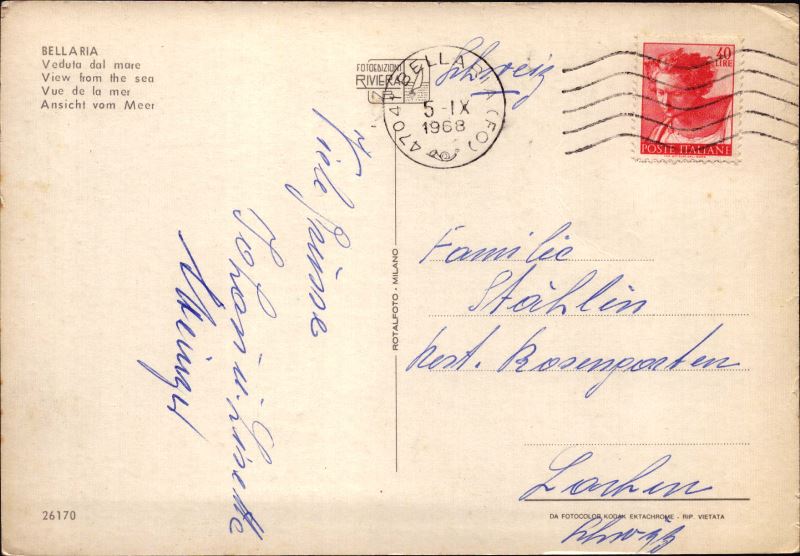 BELLARIA
Veduta dal mare
View from the sea
Vue de la mer
Ansicht vom Meer
FOTOENZIONI
RIVIERA
47041 BELLARIA (FO)
5-IX
1968
Schweiz
40
LIRE
POSTE ITALIANE
Viele Grüsse
Johann u. Lisette
ROTALFOTO - MILANO
Familie
Stählin
Rest. Rosengarten
Lachen
Schwyz
26170
DA FOTOCOLOR KODAK EKTACHROME - RIP. VIETATA